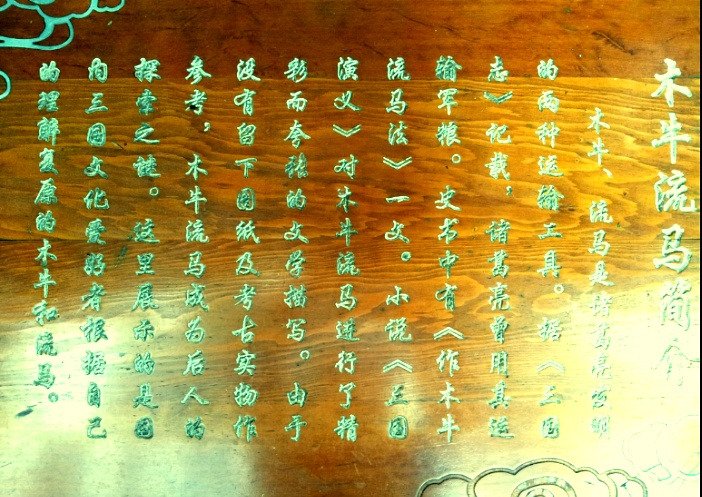 木牛流马简介
木牛、流马是诸葛亮发明
的两种运输工具。据《三国
志》记载，诸葛亮曾用其运
输军粮。史书中有《作木牛
流马法》一文。小说《三国
演义》对木牛流马进行了精
彩而夸张的文学描写。由于
没有留下图纸及考古实物作
参考，木牛流马成为后人的
探索之谜。这里展示的是国
内三国文化爱好者根据自己
的理解复原的木牛和流马。